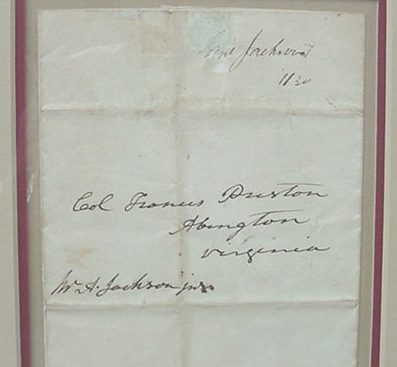 Genl Jackson's
1830
Col Francis Preston
Abington
Virginia
Mr A. Jackson jnr